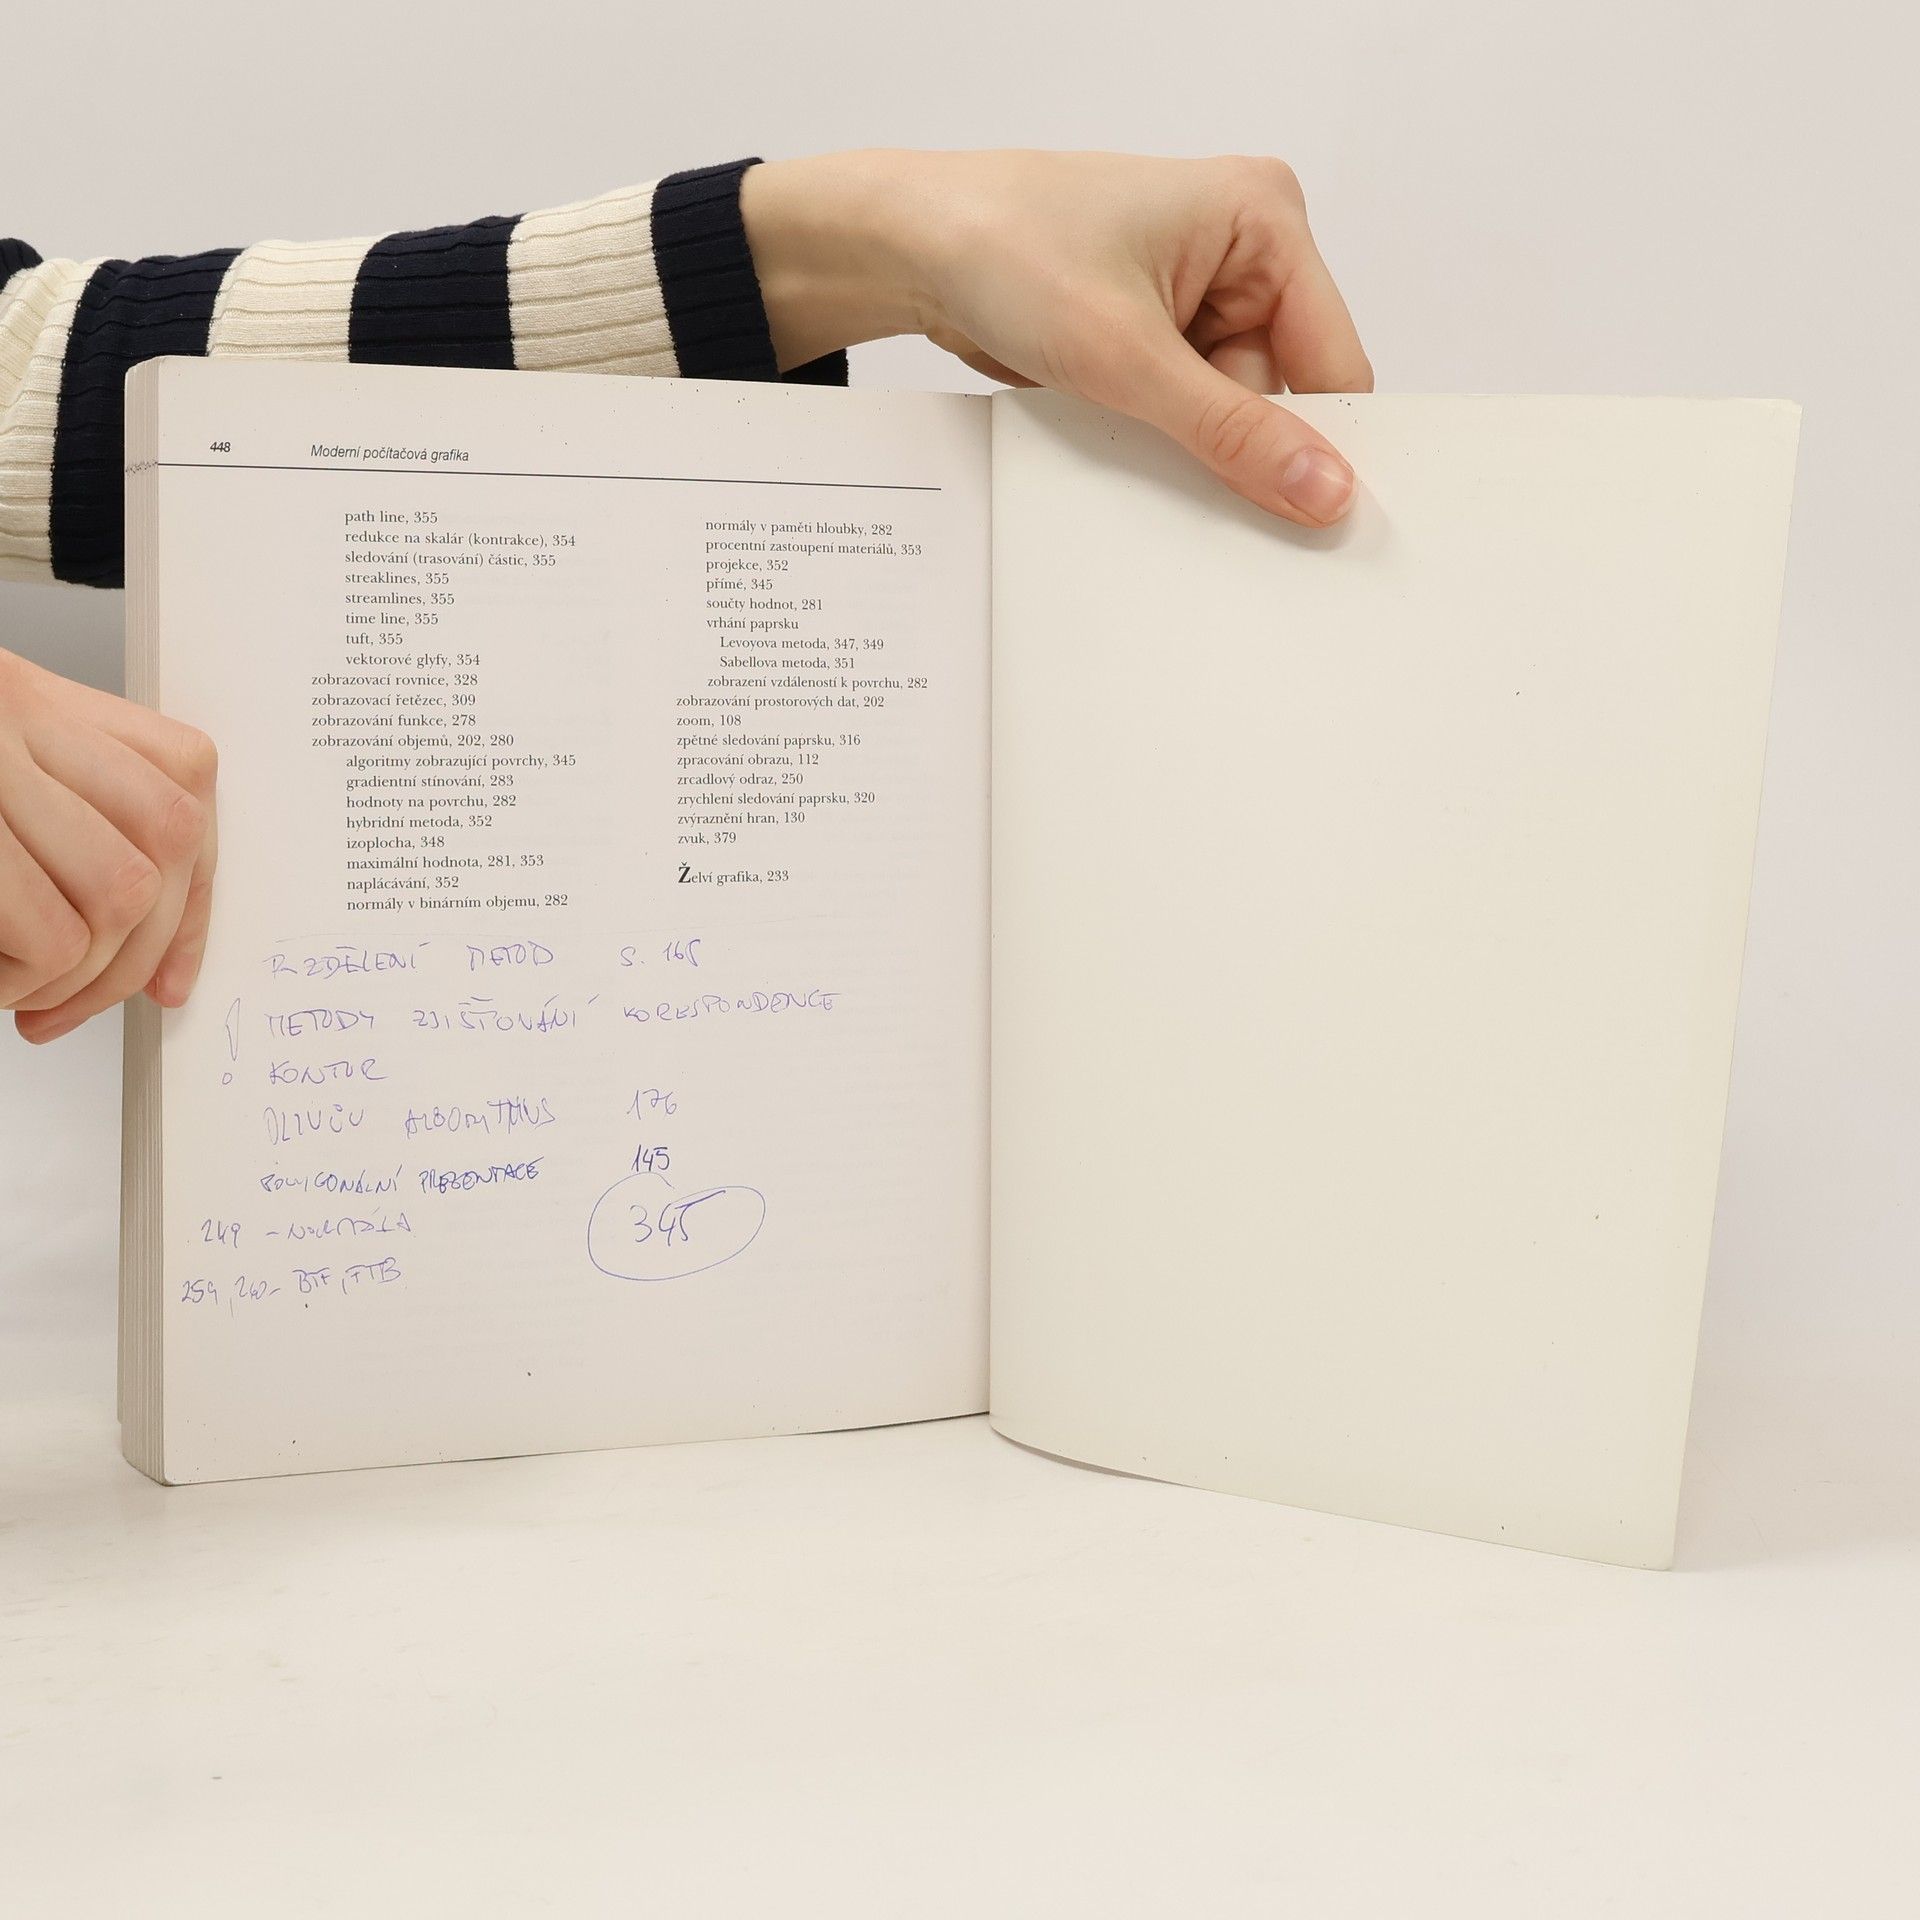 448 Moderní počítačová grafika
path line, 355
redukce na skalár (kontrakce), 354
sledování (trasování) částic, 355
streaklines, 355
streamlines, 355
time line, 355
tuft, 355
vektorové glyfy, 354
zobrazovací rovnice, 328
zobrazovací řetězec, 309
zobrazování funkce, 278
zobrazování objemů, 202, 280
algoritmy zobrazující povrchy, 345
gradientní stínování, 283
hodnoty na povrchu, 282
hybridní metoda, 352
izoplocha, 348
maximální hodnota, 281, 353
naplácávání, 352
normály v binárním objemu, 282
normály v paměti hloubky, 282
procentní zastoupení materiálů, 353
projekce, 352
přímé, 345
součty hodnot, 281
vrhání paprsku
Levoyova metoda, 347, 349
Sabellova metoda, 351
zobrazení vzdáleností k povrchu, 282
zobrazování prostorových dat, 202
zoom, 108
zpětné sledování paprsku, 316
zpracování obrazu, 112
zrcadlový odraz, 250
zrychlení sledování paprsku, 320
zvýraznění hran, 130
zvuk, 379
Želví grafika, 233
METOD S.
! METODY ZJIŠŤOVÁNÍ KORESPONDENCE
KONTUR
ALGORITMUS 176
POLYGONÁLNÍ PREZENTACE 145
345
249 - NORMÁLA
BTF, FTB